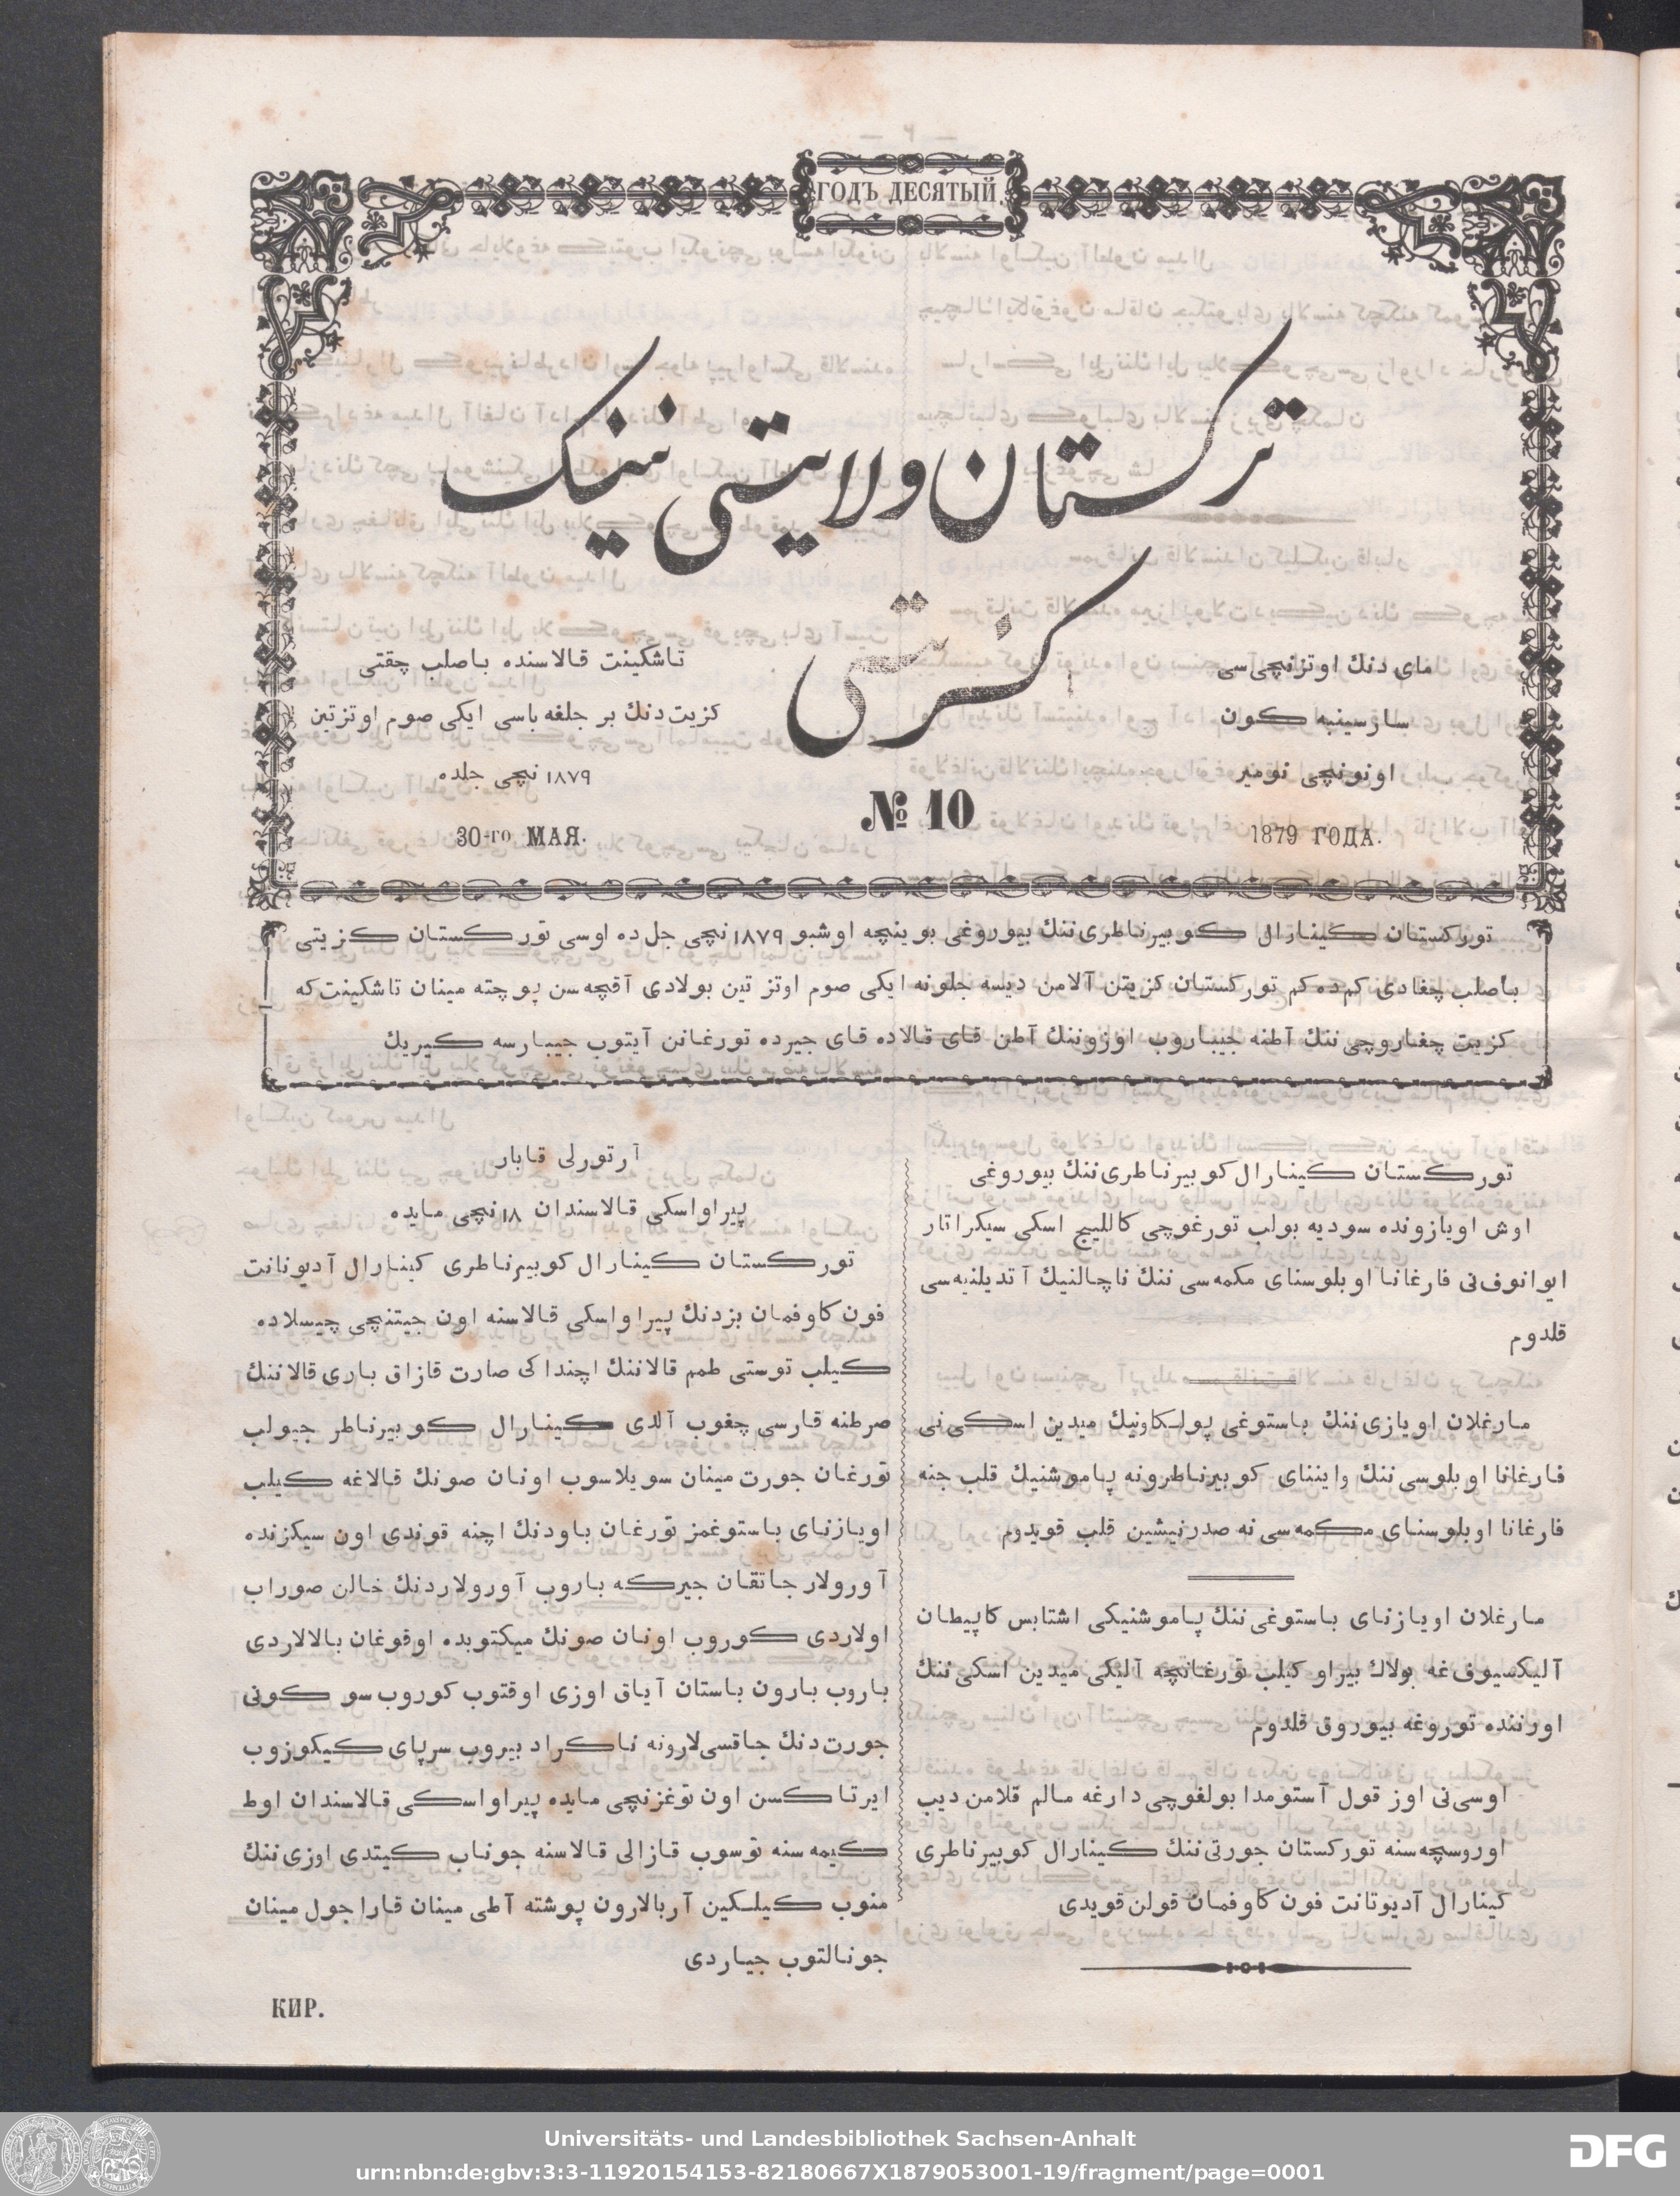 ГОДЪ ДЕСЯТЫЙ.
تركستان ولايتى نينك
كزيتى
ماى دنك اوتزنچى سى
سارسينبه كون
اونونچى نومير
1879 ГОДА.
№ 10
تاشكينت قالاسنده باصلب چقتى
كزيت دنك بر جلغه باسى ايكى صوم اوتزتين
١٨٧٩ نچى جلده
30-го МАЯ.
توركستان كينارال كوبيرناطرى ننك بيوروغى بوينچه اوشبو ١٨٧٩ نچى جل ده اوسى توركستان كزيتى
باصلب چغادى كم ده كم توركستان كزيتن آلامن ديسه جلونه ايكى صوم اوتز تين بولادى آقچه سن پوچته مينان تاشكينت كه
كزيت چغاروچى ننك آطنه جيباروب اوزوننك آطن قاى قالاده قاى جيرده تورغانن آيتوب جيبارسه كيريك
توركستان كينارال كوبيرناطرى ننك بيوروغى
اوش اويازونده سوديه بولب تورغوچى كالليج اسكى سيكراتار
ايوانوف نى فارغانا اوبلوسناى مكمه سى ننك ناچالنيك آتديلنيه سى
قلدوم
مارغلان اويازى ننك باستوغى پولكاونيك ميدين اسكى نى
فارغانا اوبلوسى ننك واينناى كوبيرناطرونه پاموشنيك قلب جنه
فارغانا اوبلوسناى مكمه سى نه صدرنيشين قلب قويدوم
مارغلان اويازناى باستوغى ننك پاموشنيكى اشتابس كاپيطان
آليكسيوف غه بولاك بيراو كيلب تورغانچه آليكى ميدين اسكى ننك
اورننده توروغه بيوروق قلدوم
اوسى نى اوز قول آستومدا بولغوچى دارغه مالم قلامن ديب
اوروسچه سنه توركستان جورتى ننك كينارال كوبيرناطرى
كينارال آديوتانت فون كاوفمان قولن قويدى
آرتورلى قابار
پيراواسكى قالاسندان ١٨ نچى مايده
توركستان كينارال كوبيرناطرى كينارال آديوتانت
فون كاوفمان بزدنك پيراواسكى قالاسنه اون جيتنچى چيسلاده
كيلب توستى طمم قالاننك اچنداكى صارت قازاق بارى قالاننك
صرطنه قارسى چغوب آلدى كينارال كوبيرناطر جيولب
تورغان جورت مينان سويلاسوب اونان صونك قالاغه كيلب
اويازناى باستوغمز تورغان باودنك اچنه قوندى اون سيكزنده
آورولار جاتقان جيركه باروب آورولاردنك خالن صوراب
اولاردى كوروب اونان صونك ميكتوبده اوقوغان بالالاردى
باروب بارون باستان آياق اوزى اوقتوب كوروب سو كونى
جورت دنك جاقسى لارونه ناكراد بيروب سرپاى كيكوزوب
ايرتاكسن اون توغزنچى مايده پيراواسكى قالاسندان اوط
كيمه سنه توسوب قازالى قالاسنه جوناب كيتدى اوزى ننك
منوب كيلكين آربالارون پوشته آطى مينان قارا جول مينان
جونالتوب جياردى
КИР.
Universitäts- und Landesbibliothek Sachsen-Anhalt
urn:nbn:de:gbv:3:3-11920154153-82180667X1879053001-19/fragment/page=0001
DFG